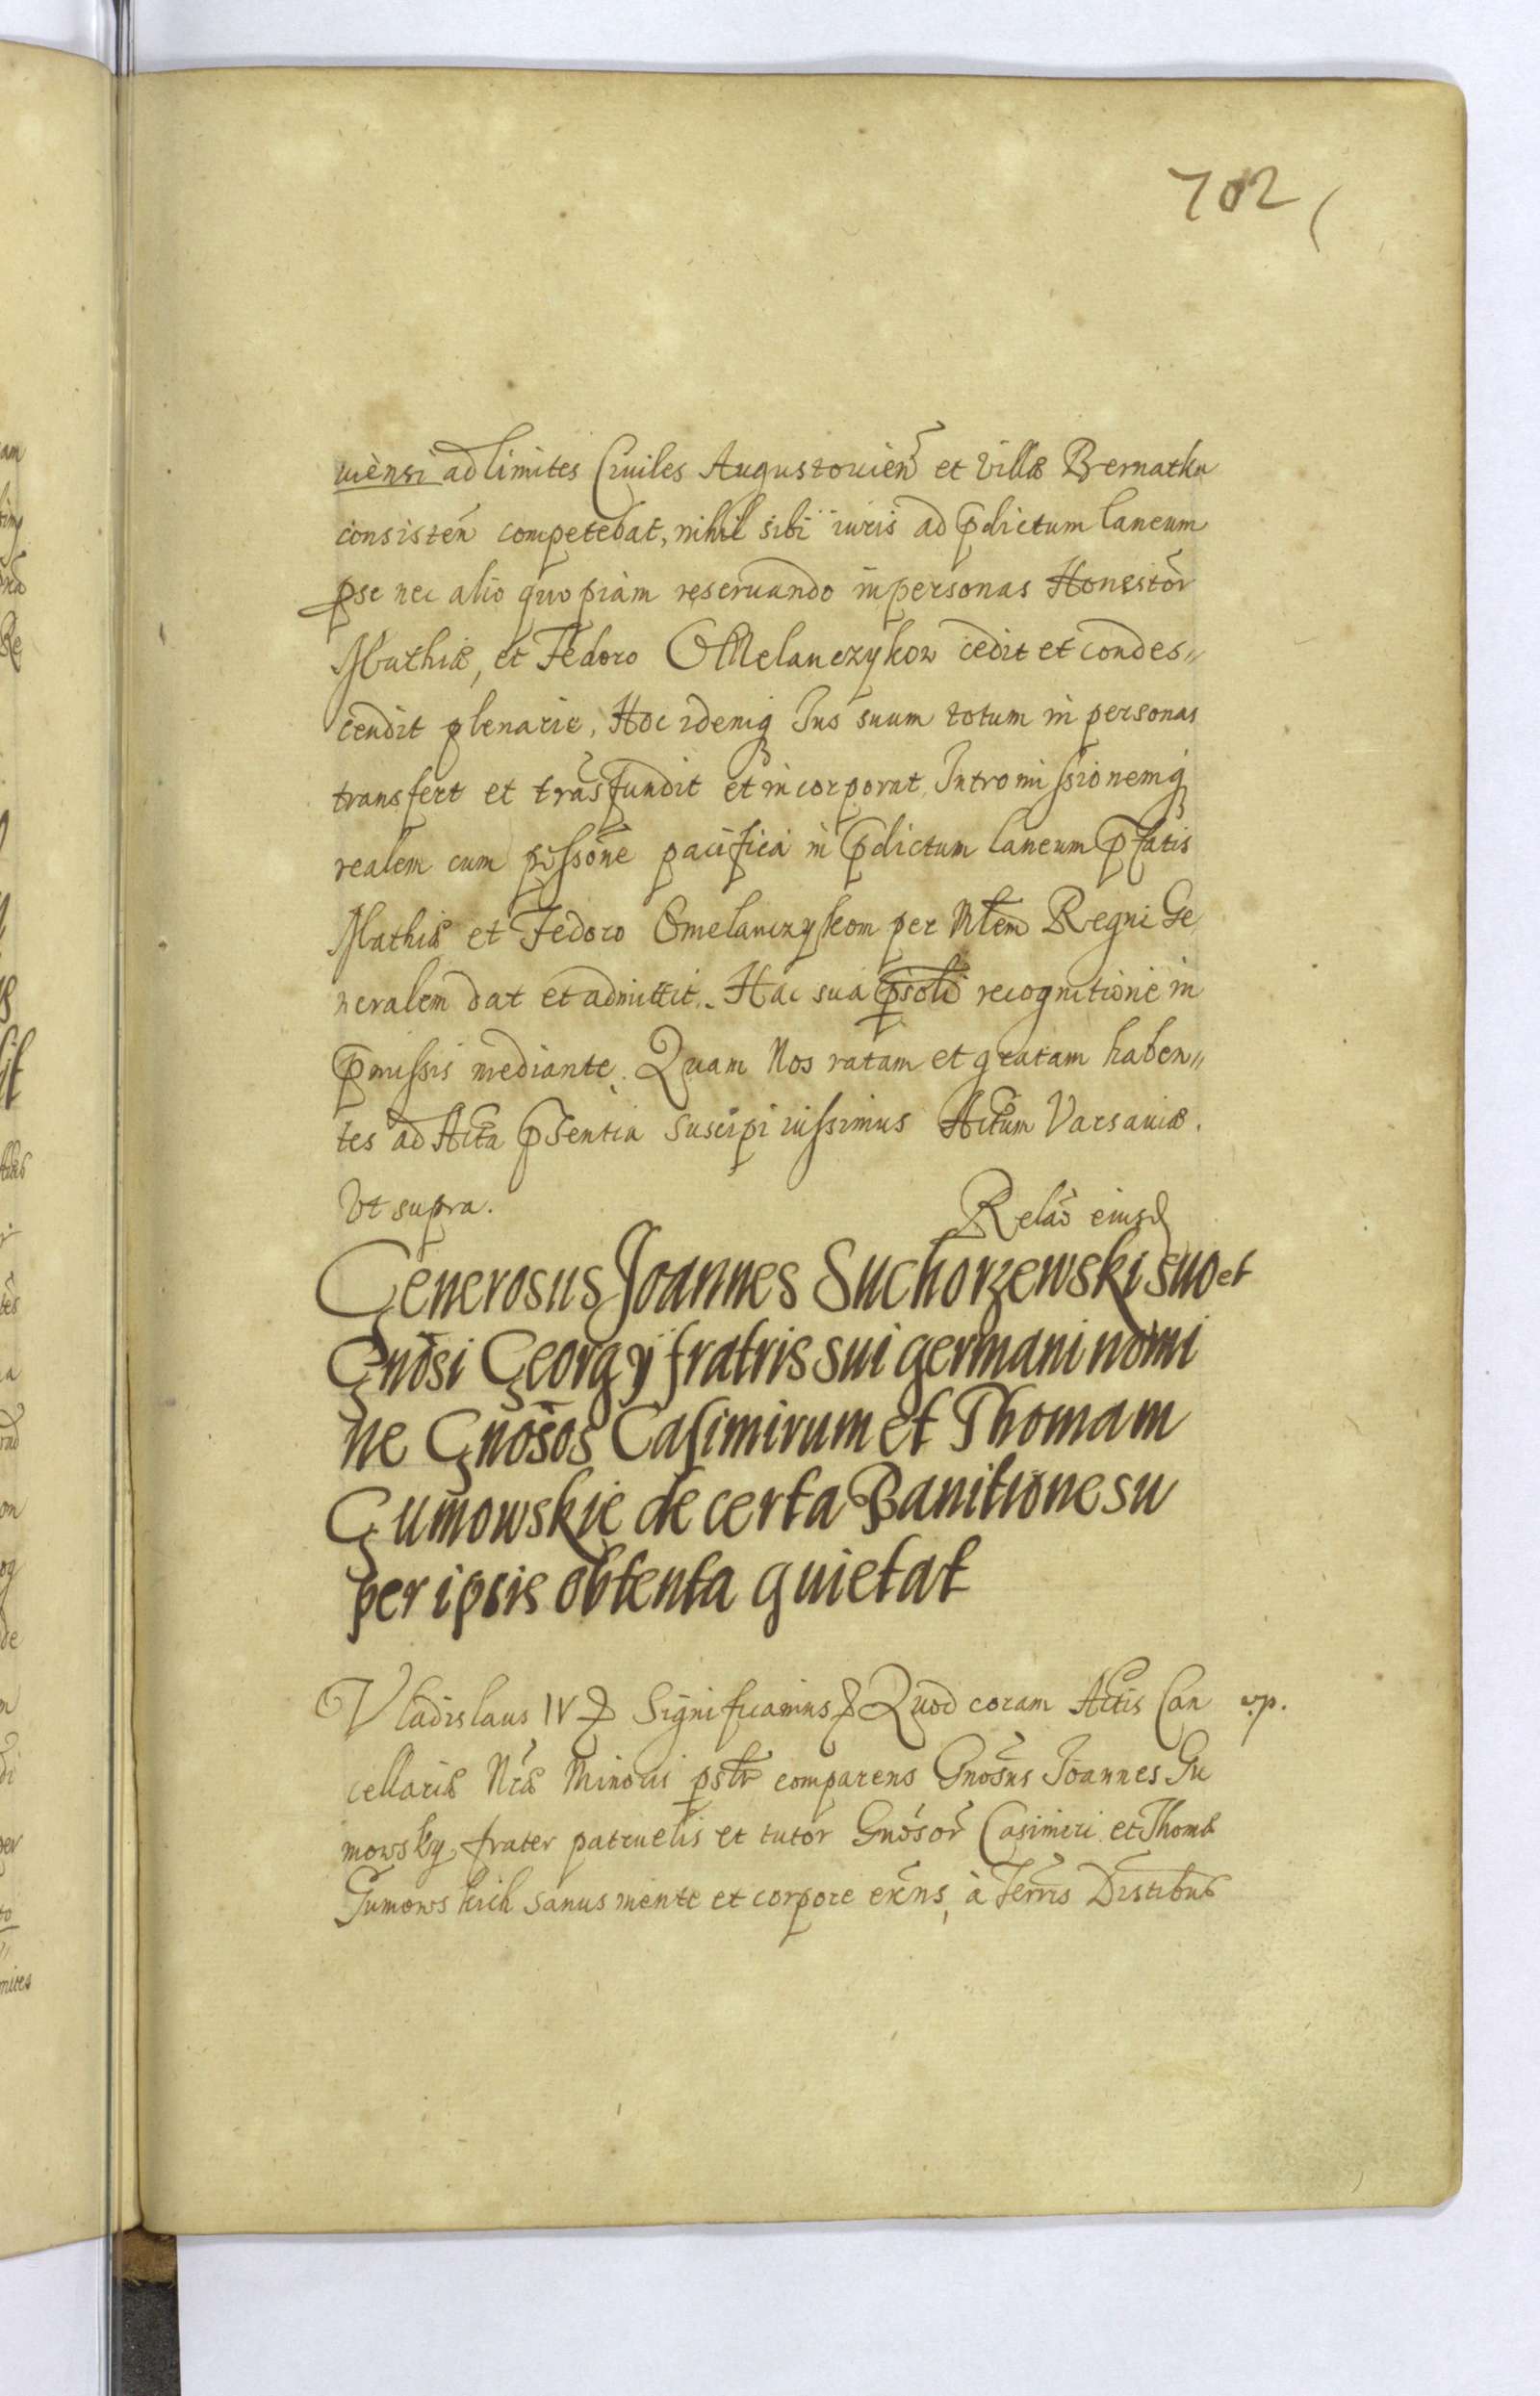 702
uiensi ad limites Ciuiles Augustouien̄ et villæ Bernatka
consisten̄ competebat, nihil sibi iuris ad p̄dictum laneum
p̱se nec alio quopiam reseruando in personas Honestor̄
Mathiæ, et Fedoro OMelanczykow cedit et condes„
cendit plenarie, Hoc idemq̧ Ius suum totum in personas
transfert et trāsfundit et incorporat, Intromissionemq̧
realem cum possōne pacifica in p̄dictum laneum p̄fatis
Mathiæ et Fedoro Omelanczykom per Mlem̄ Regni Ge
neralem dat et admittit. Hac sua recognitione in
p̄missis mediante. Quam Nos ratam et gratam haben„
tes ad Acta p̄sentia suscipi iussimus Actum Varsauiæ.
Vt supra. Relaō eiusd
Generosus Joannes Suchorzewski suo et
Gnōsi Georgÿ fratris sui germani nomi
ne Gnōsos Casimirum et Thomam
Gumowskie de certa Banitione su
per ipsis obtenta quietat
Vladislaus IV Significamus Quod coram Actis Can v.p.
cellariæ Nr̄æ Minoris pslr̄ comparens Gnōsus Joannes Gu
mowsky frater patruelis et tutor Gnōsor̄ Casimiri et Thomæ
Gumowskich sanus mente et corpore exn̄s, à Terris Distibus